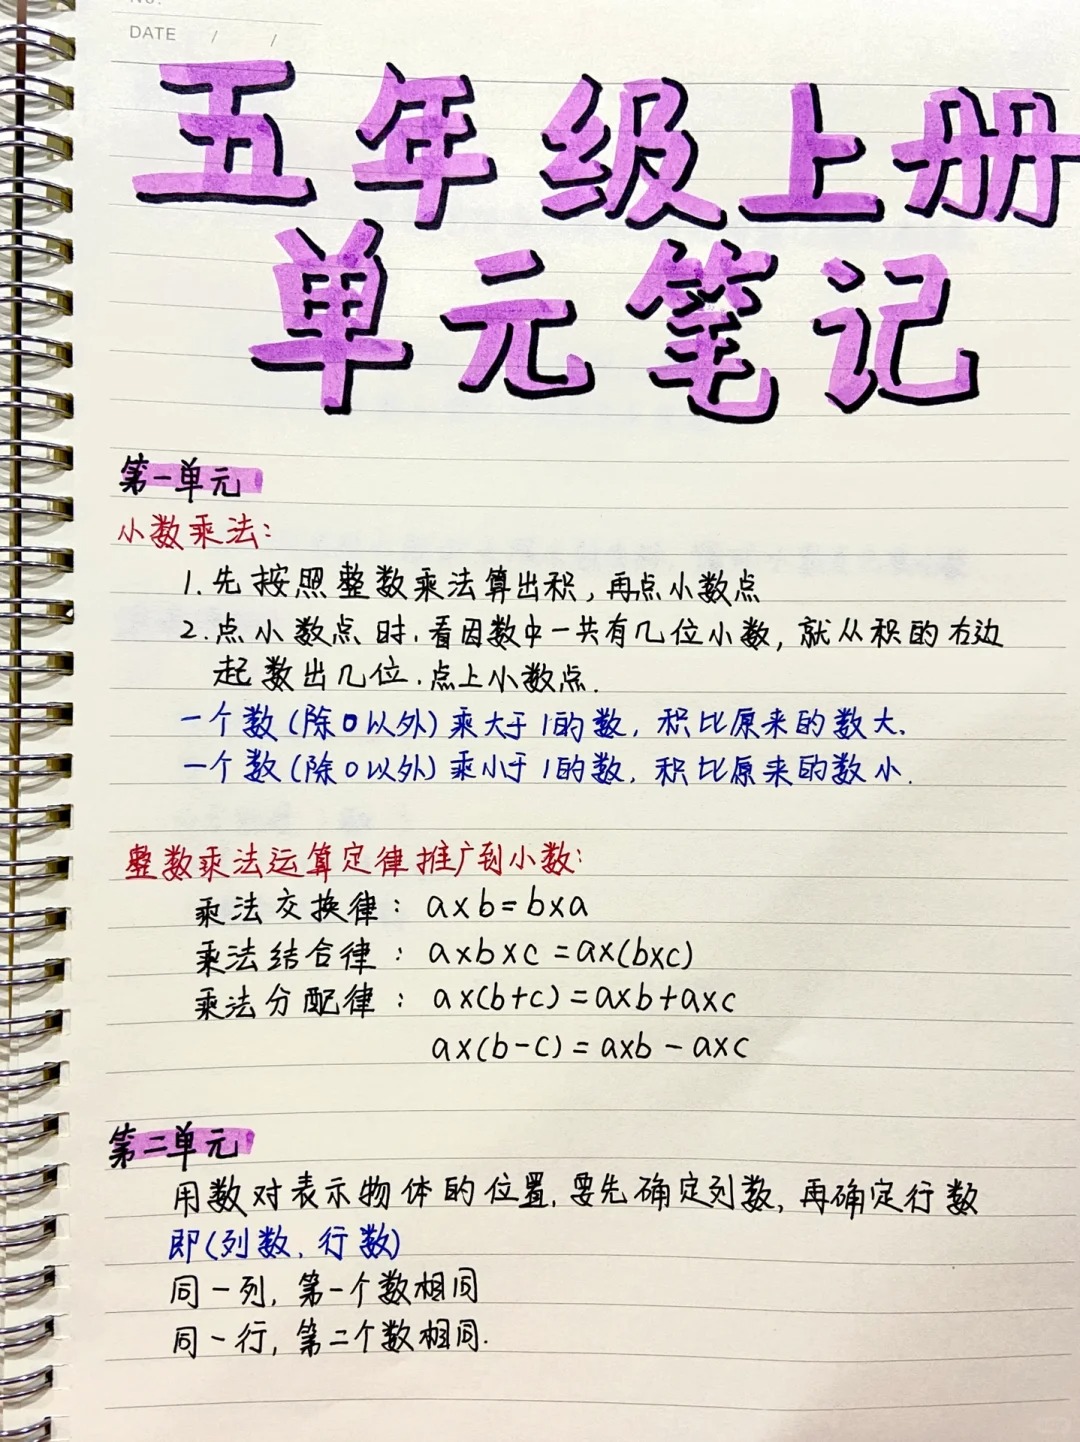 NO.
DATE / /
五年级上册
单元笔记
第一单元
小数乘法:
1.先按照整数乘法算出积,再点小数点
2.点小数点时,看因数中一共有几位小数,就从积的右边
起数出几位,点上小数点.
一个数(除0以外)乘大于1的数,积比原来的数大.
一个数(除0以外)乘小于1的数,积比原来的数小.
整数乘法运算定律推广到小数:
乘法交换律: a×b=b×a
乘法结合律: a×b×c=a×(b×c)
乘法分配律: a×(b+c)=a×b+a×c
a×(b-c)=a×b-a×c
第二单元
用数对表示物体的位置,要先确定列数,再确定行数
即(列数,行数)
同一列,第一个数相同
同一行,第二个数相同.